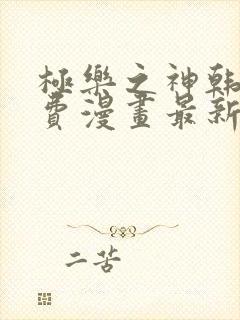 極樂之神韩
費漫畫最新
二苦